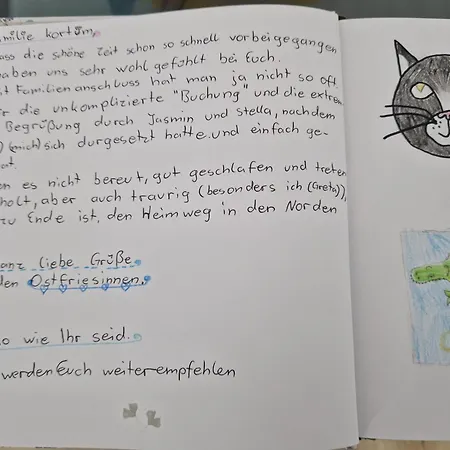 amilie kortüm,
ass die schöne Zeit schon so schnell vorbeigegangen
aben uns sehr wohl gefühlt bei Euch.
t Familienanschluss hat man ja nicht so oft.
ir die unkomplizierte "Buchung" und die extrem
Begrüßung durch Jasmin und Stella, nachdem
) (mich) sich durgesetzt hatte und einfach ge-
at.
en es nicht bereut, gut geschlafen und treten
holt, aber auch traurig (besonders ich (Greta)),
zu Ende ist, den Heimweg in den Norden
anz liebe Grüße
den Ostfriesinnen.
o wie Ihr seid.
werden Euch weiterempfehlen